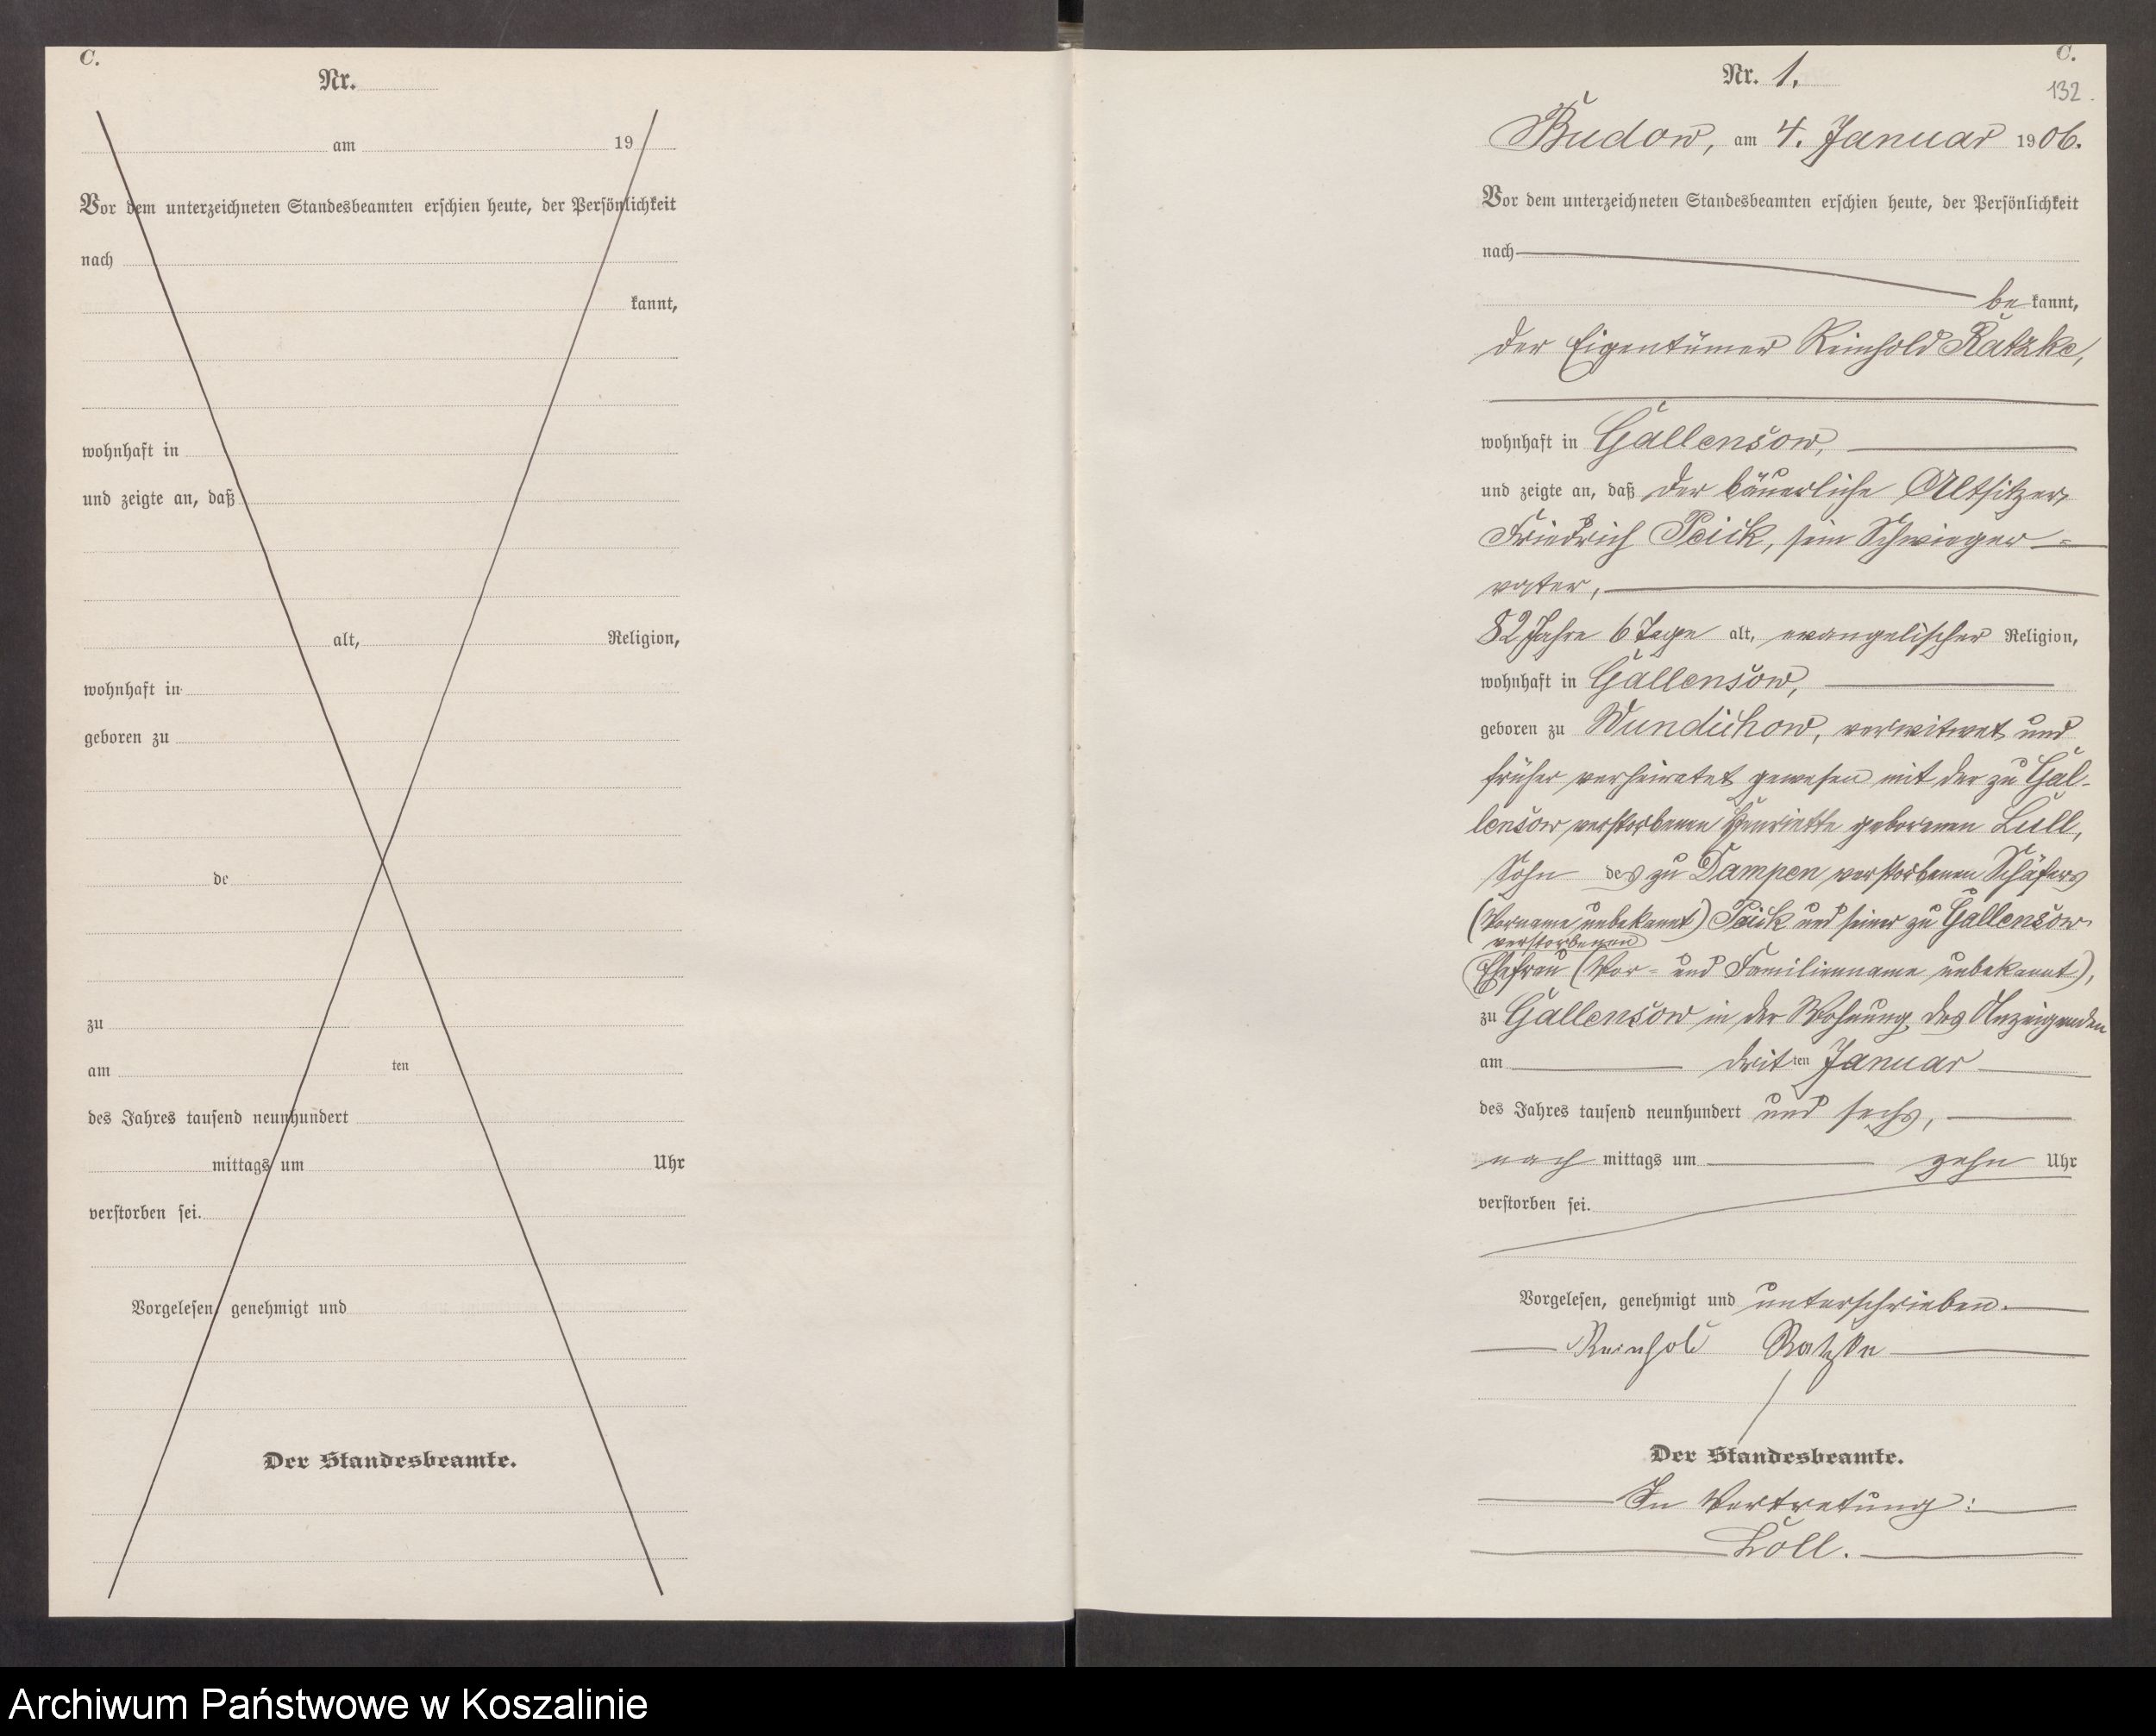 C.
Nr.
am 19
Vor dem unterzeichneten Standesbeamten erschien heute, der Persönlichkeit
nach
kannt,
wohnhaft in
und zeigte an, daß
alt, Religion,
wohnhaft in
geboren zu
de
zu
am ten
des Jahres tausend neunhundert
mittags um Uhr
verstorben sei.
Vorgelesen, genehmigt und
Der Standesbeamte.
C.
Nr. 1.
132.
Budow, am 4. Januar 1906.
Vor dem unterzeichneten Standesbeamten erschien heute, der Persönlichkeit
nach
be kannt,
der Eigentümer Reinhold Ratzke,
wohnhaft in Gallensow,
und zeigte an, daß der bäuerliche Altsitzer,
Friedrich Peick, sein Schwieger=
vater,
82 Jahre 6 Tage alt, evangelischer Religion,
wohnhaft in Gallensow,
geboren zu Wundichow, verwitwet und
früher verheiratet gewesen mit der zu Gal-
lensow verstorbenen Henriette geborenen Lull,
Sohn des zu Dampen verstorbenen Schäfers
(Vorname unbekannt) Peick und seiner zu Gallensow
verstorbenen
Ehefrau (Vor- und Familienname unbekannt),
zu Gallensow in der Wohnung des Anzeigenden
am dritten Januar
des Jahres tausend neunhundert und sechs,
nach mittags um zehn Uhr
verstorben sei.
Vorgelesen, genehmigt und unterschrieben.
Reinhold Ratzke
Der Standesbeamte.
In Vertretung:
Loll.
Archiwum Państwowe w Koszalinie